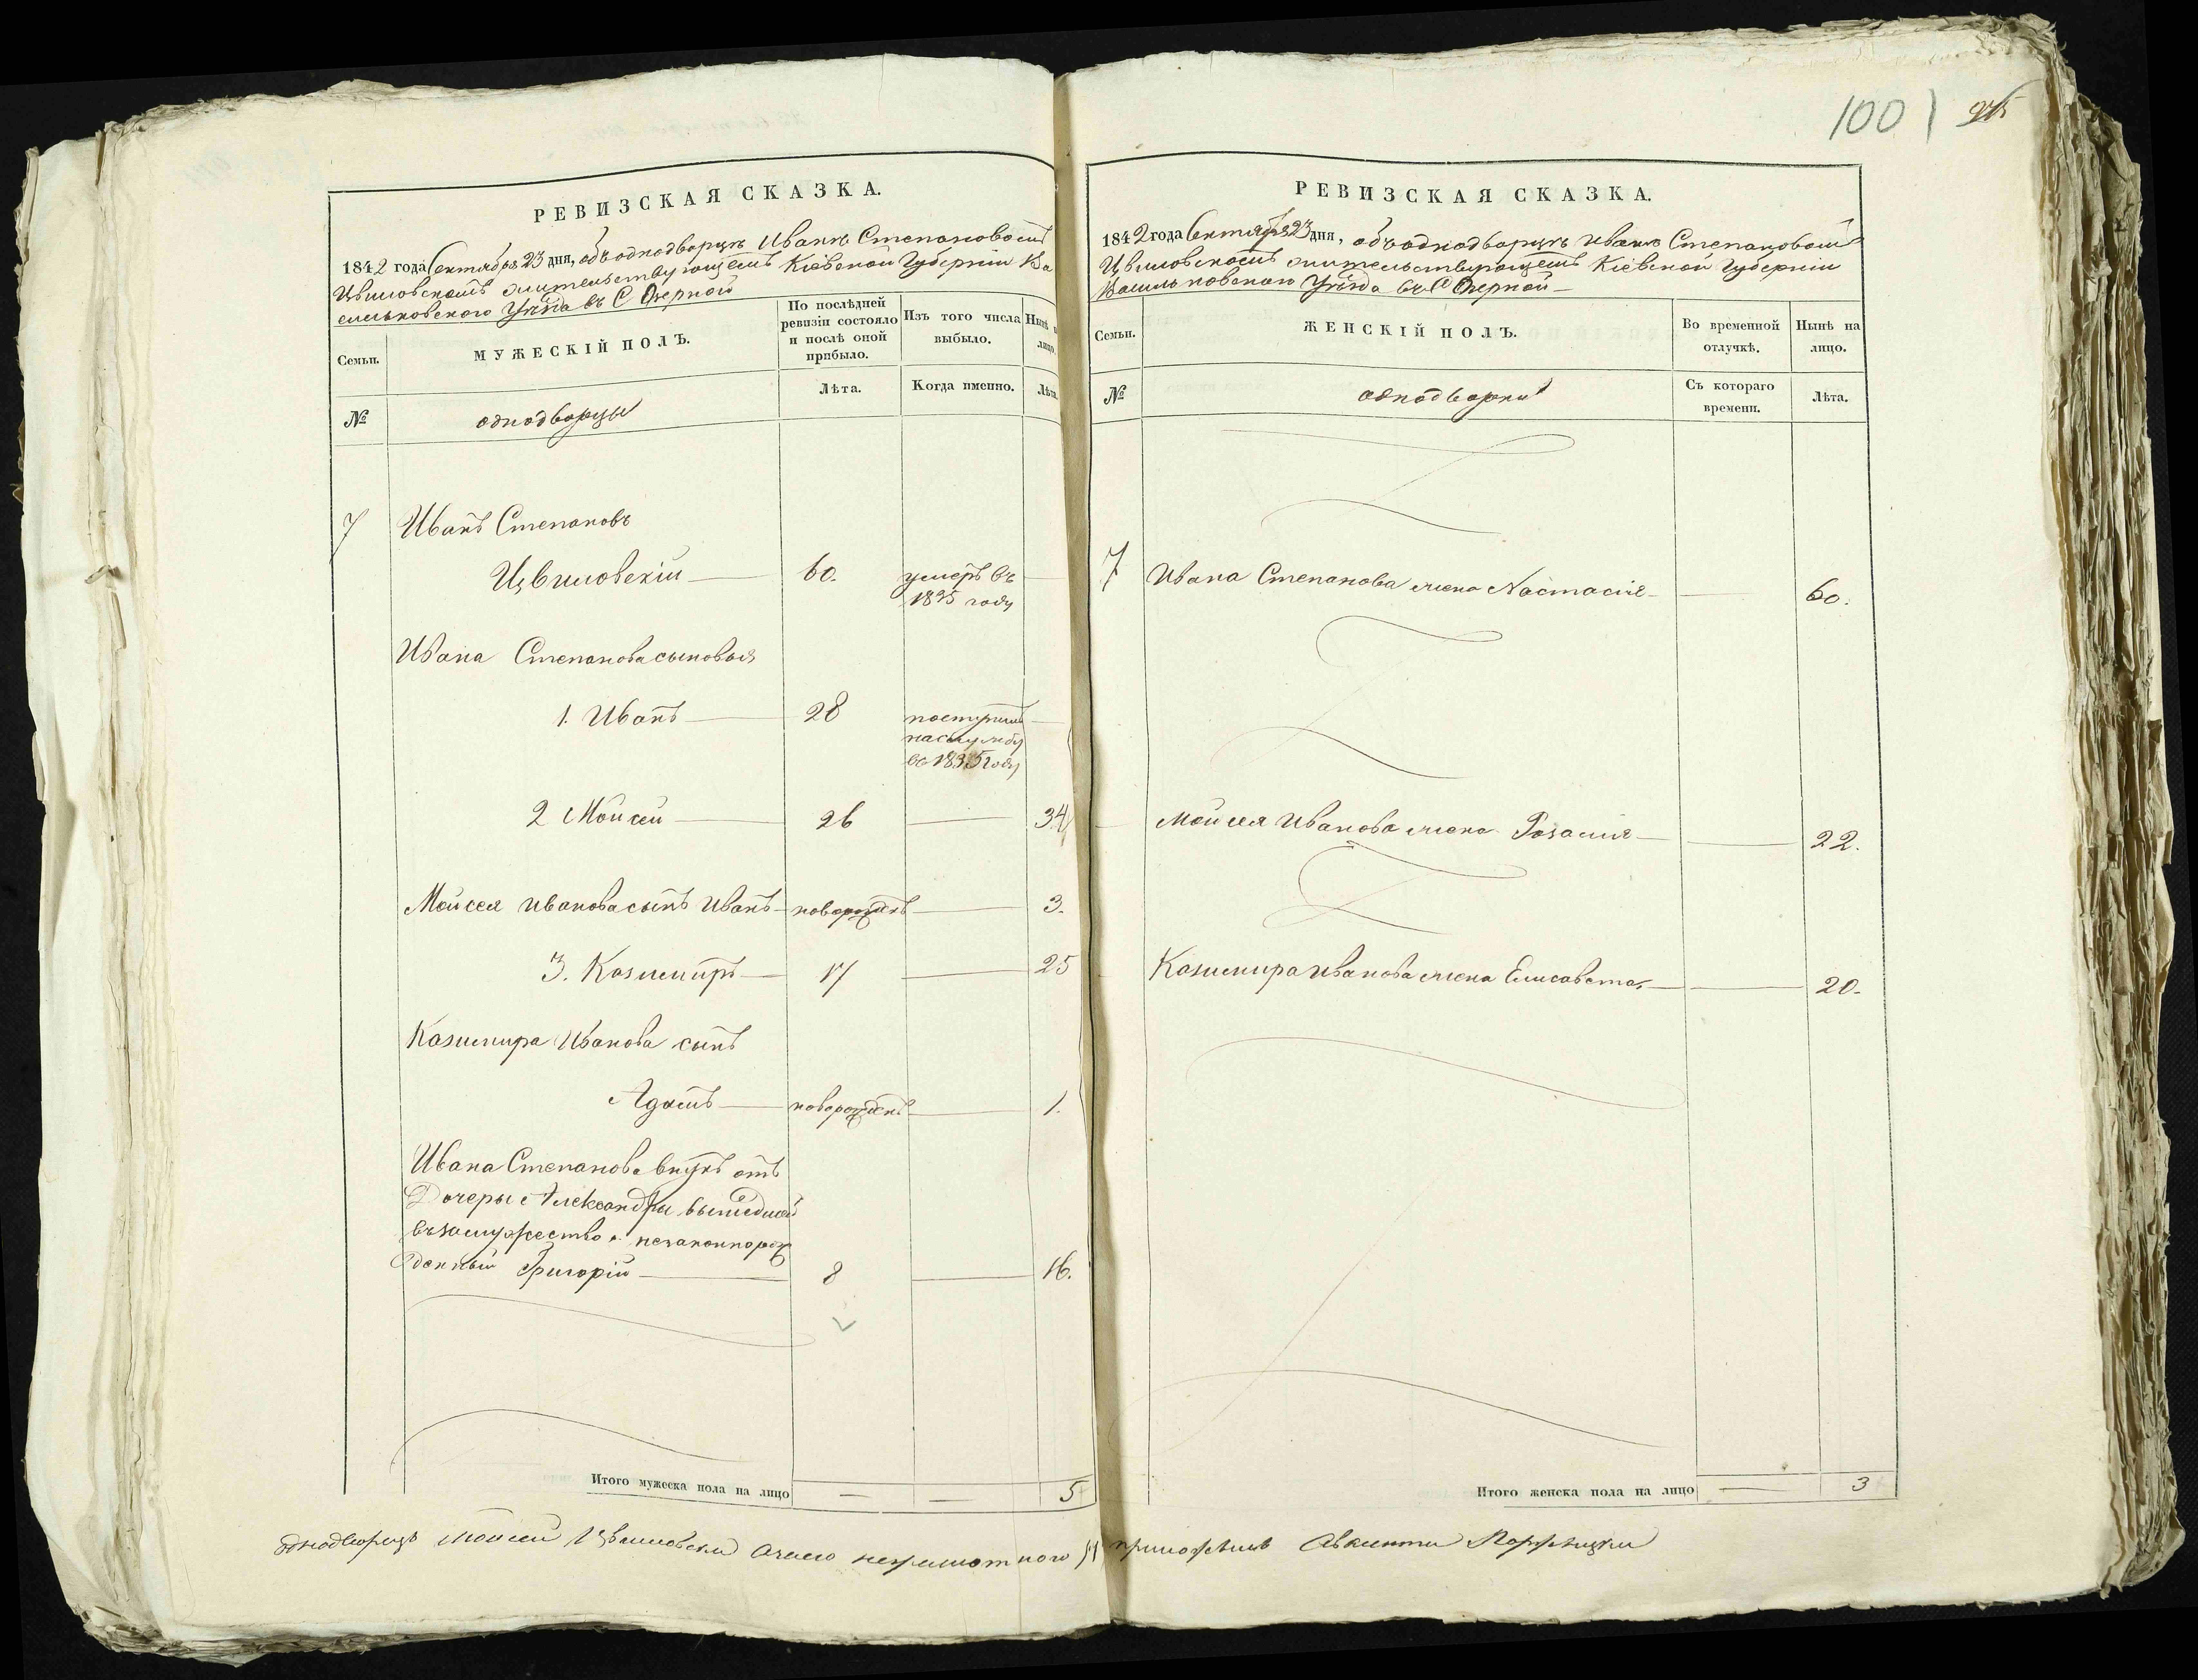 100
РЕВИЗСКАЯ СКАЗКА.
1842 года Сентября 23 дня, объ однодворцѣ Иванѣ Степановомъ
Цвиловскомъ жительствующемъ Кіевской Губерніи Ва
сильковского Уѣзда въ С Озерной
Семьи.
МУЖЕСКІЙ ПОЛЪ.
По послѣдней
ревизіи состояло
и послѣ оной
прибыло.
Изъ того числа
выбыло.
Нынѣ
лицо.
№
однодворцы
Лѣта.
Когда именно.
Лѣта.
7 Иванъ Степановъ
Цвиловскій 60. умеръ въ
1835 году
Ивана Степанова сыновья
1. Иванъ 28 поступилъ
на службу
въ 1835 году
2 Мойсей 26 34
Мойсея Иванова сынъ Иванъ новорожденъ 3.
3. Казимиръ 17 25
Казимира Иванова сынъ
Адамъ новорожденъ 1.
Ивана Степанова внукъ отъ
Дочеры Александры вышедшей
въ замужество незаконнорож
денный Григорій 8 16.
Итого мужеска пола на лицо 5
РЕВИЗСКАЯ СКАЗКА.
1842 года Сентября 23 дня, объ однодворцѣ Иванѣ Степановомъ
Цвиловскомъ жительствующемъ Кіевской Губерніи
Васильковского Уѣзда въ С Озерной
Семьи.
ЖЕНСКІЙ ПОЛЪ.
Во временной
отлучкѣ.
Нынѣ на
лицо.
№
однодворки
Съ котораго
времени.
Лѣта.
7 Ивана Степанова жена Настасія 60.
Мойсея Иванова жена Розалія 22.
Казимира Иванова жена Елисавета 20.
Итого женска пола на лицо 3
однодворецъ Мойсей Цвиловски а за его неграмотного приложилъ